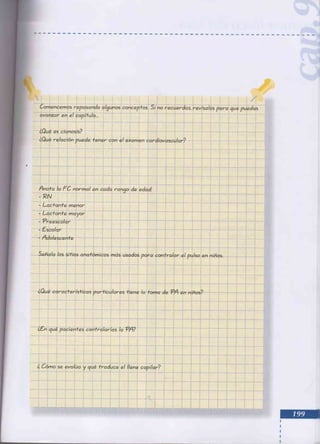 cap.9
Comencemos repasando algunos conceptos. Si no recuerdas, revísalos para que puedas
avanzar en el capítulo.
¿Qué es cianosis?
¿Qué relación puede tener con el examen cardiovascular?
Anota la FC normal en cada rango de edad:
- RN
- Lactante menor
- Lactante mayor
- Preescolar
- Escolar
- Adolescente
Señala los sitios anatómicos más usados para controlar el pulso en niños.
¿Qué características particulares tiene la toma de PA en niños?
¿En qué pacientes controlarías la PA?
¿Cómo se evalúa y qué traduce el llene capilar?
199